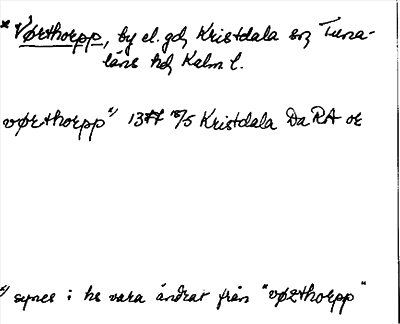 * Vørthorpp, by el. gd, Kristdala sn, Tuna-
läns hd, Kalm l.
vørthorpp 1) 1377 18/5 Kristdala Da RA or
1) synes i hs vara ändrat från "vøzthorpp"